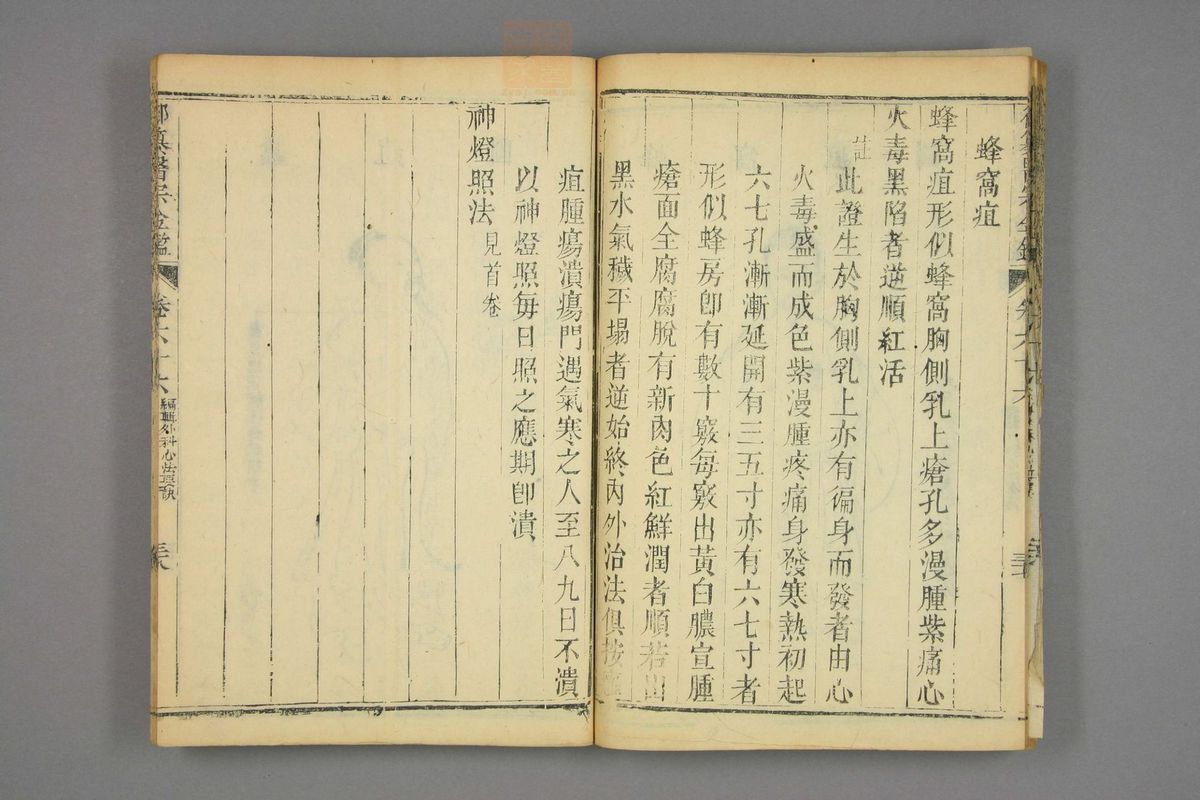 蜂窩疽
蜂窩疽形似蜂窩胸側乳上瘡孔多漫腫紫痛心
火毒黑陷者逆順紅活
註此證生於胸側乳上亦有徧身而發者由心
火毒盛而成色紫漫腫疼痛身發寒熱初起
六七孔漸漸延開有三五寸亦有六七寸者
形似蜂房卽有數十竅每竅出黃白膿宣腫
瘡面全腐腐脫有新肉色紅鮮潤者順若出
黑水氣穢平塌者逆始終內外治法俱按
疽腫瘍潰瘍門遇氣寒之人至八九日不潰
以神燈照每日照之應期卽潰
神燈照法見首卷
御纂醫宗金鑑 卷六十六 編輯外科心法要訣